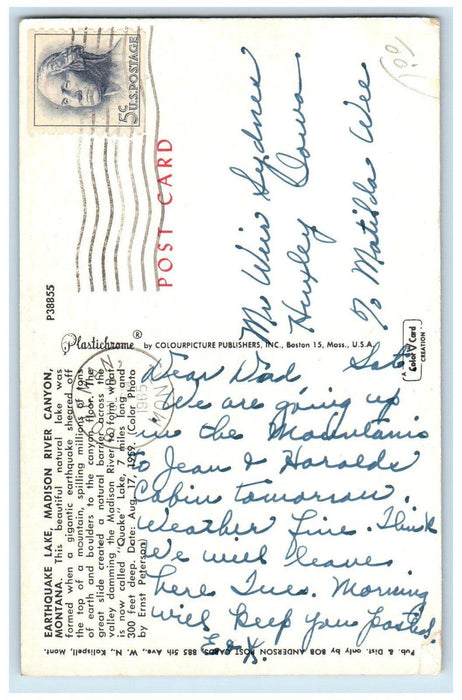 5¢ U.S. POSTAGE
POST CARD
Mr Weir Sydnes
Huxley Iowa
% Matilda Wee
P38855
Plastichrome® by COLOURPICTURE PUBLISHERS, INC., Boston 15, Mass., U.S.A.
A Color V Card CREATION
EARTHQUAKE LAKE, MADISON RIVER CANYON,
MONTANA. This beautiful natural lake was
formed when a gigantic earthquake sheared off
the top of a mountain, spilling millions of tons
of earth and boulders to the canyon floor. The
great slide created a natural barrier across the
valley damming the Madison River to form what
is now called "Quake" Lake, 7 miles long and
300 feet deep. Date: Aug. 17, 1959. (Color Photo
by Ernst Peterson)
Dear Dad Sat.
We are going up
in the Mountains
to Jean & Harolds
Cabin tomorrow.
Weather fine. Think
We will leave
here Tues. Morning
will keep you posted.
Pub. & Dist. only by BOB ANDERSON POST CARDS, 885 5th Ave., W. N., Kalispell, Mont.